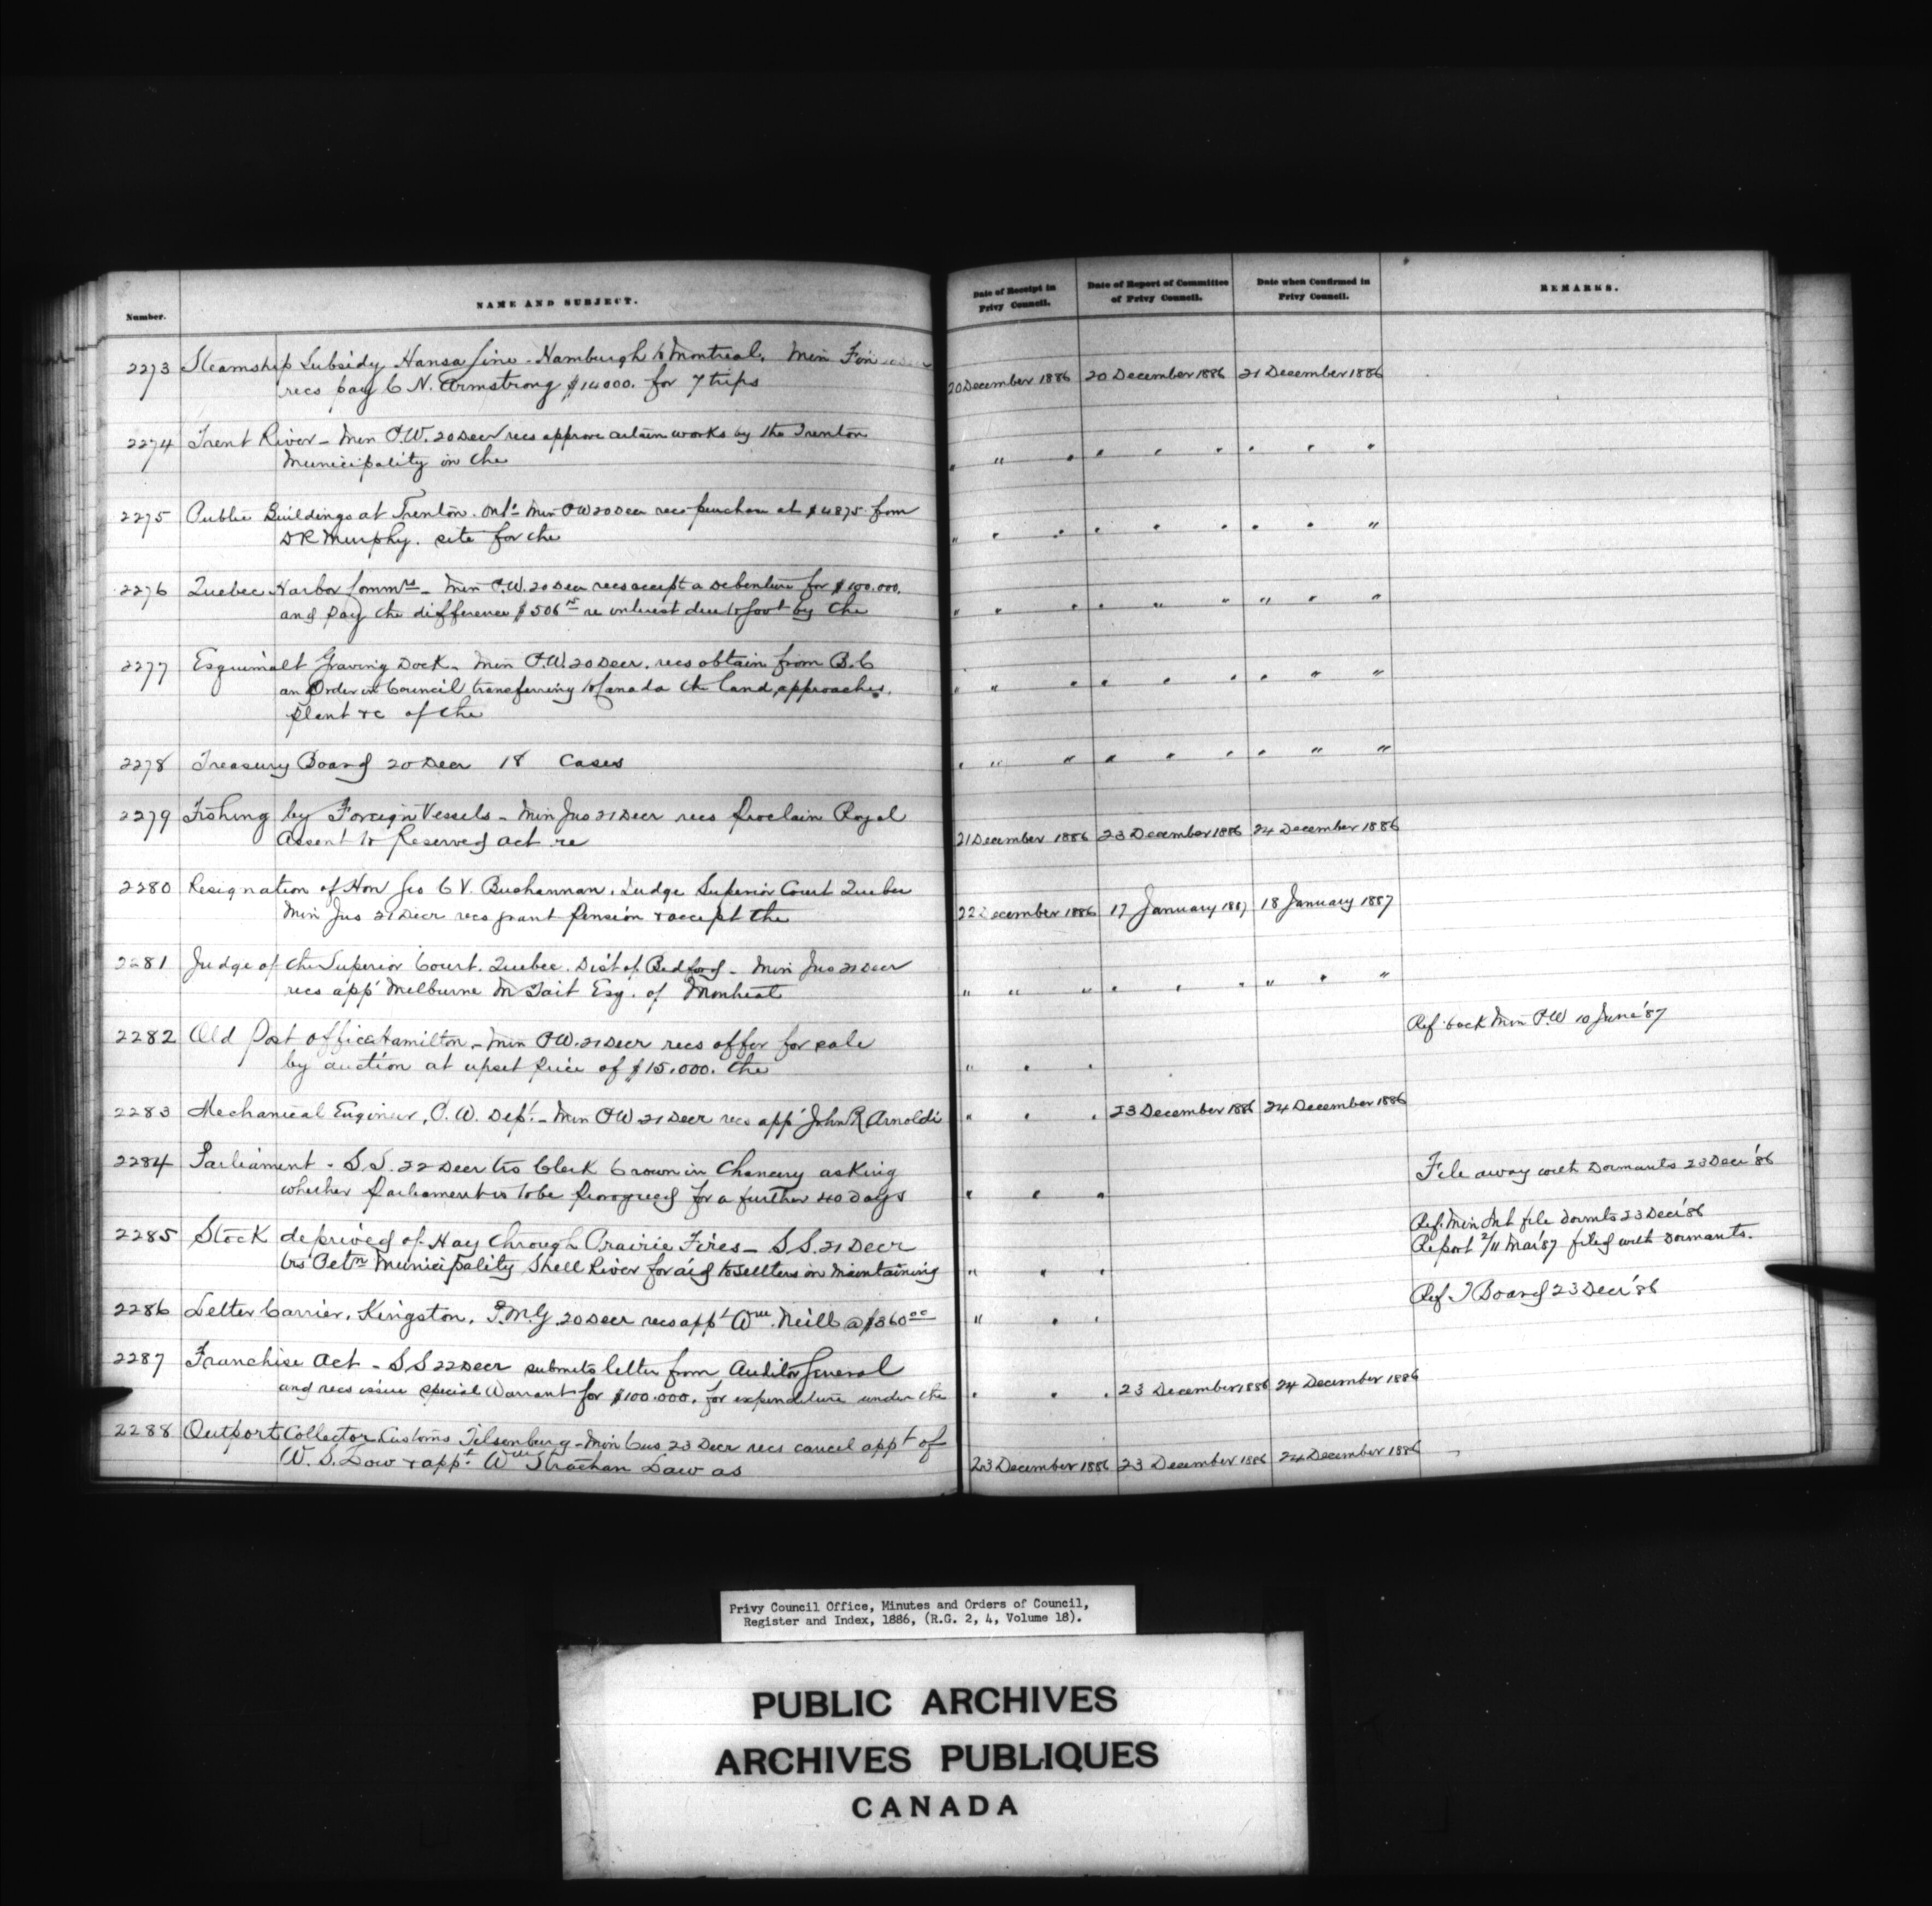 Number.
NAME AND SUBJECT.
Date of Receipt in Privy Council.
Date of Report of Committee of Privy Council.
Date when Confirmed in Privy Council.
REMARKS.
2273 Steamship Subsidy Hansa Line - Hamburgh to Montreal. Min Fin
recs pay C N. Armstrong $14000. for 7 trips
20 December 1886 20 December 1886 21 December 1886
2274 Trent River - Min P.W. 20 Decr recs approve certain works by the Trenton
Municipality in the
" " " " " " " " "
2275 Public Buildings at Trenton. Ont. Min PW 20 Decr recs purchase at $4875 from
DR Murphy. site for the
" " " " " " " " "
2276 Quebec Harbor Commrs - Min P.W. 20 Decr recs accept a Debenture for $100.000.
and pay the difference $506 re interest due to Govt by the
" " " " " " " " "
2277 Esquimalt Graving Dock - Min P.W. 20 Decr. recs obtain from B.C
an Order in Council transferring to Canada the land, approaches,
plant &c of the
" " " " " " " " "
2278 Treasury Board 20 Decr 18 Cases
" " " " " " " " "
2279 Fishing by Foreign Vessels - Min Jus 21 Decr recs proclaim Royal
Assent to Reserved Act re
21 December 1886 23 December 1886 24 December 1886
2280 Resignation of Hon Geo C V. Buchannan. Judge Superior Court Quebec
Min Jus 21 Decr recs grant Pension & accept the
22 December 1886 17 January 1887 18 January 1887
2281 Judge of the Superior Court. Quebec. Dist of Bedford - Min Jus 21 Decr
recs app Melburne M Tait Esq. of Montreal
" " " " " " " " "
2282 Old Post Office Hamilton - Min PW. 21 Decr recs offer for sale
by auction at upset price of $15.000. the
" " "
Ref. back Min P.W 10 June '87
2283 Mechanical Engineer, P.W. Dept. - Min PW 21 Decr recs app John R Arnoldi
" " " 23 December 1886 24 December 1886
2284 Parliament - S.S. 22 Decr trs Clerk Crown in Chancery asking
whether Parliament is to be Prorogued for a further 40 Days
" " "
File away with Dormants 23 Decr '86
2285 Stock deprived of Hay through Prairie Fires - S S. 21 Decr
trs Petn Municipality Shell River for aid to settlers in maintaining
" " "
Ref. Min Int file Dormts 23 Decr '86
Report 2/11 Mar '87 filed with Dormants.
2286 Letter Carrier, Kingston, P.M.G. 20 Decr recs appt Wm Neill @ $360 00
" " "
Ref. T Board 23 Decr '86
2287 Franchise Act - S S 22 Decr submits letter from Auditor General
and recs issue special Warrant for $100.000. for expenditure under the
" " " 23 December 1886 24 December 1886
2288 Outport Collector Customs Tilsenburg - Min Cus 23 Decr recs cancel appt of
W. S. Law & appt. Wm Strachan Law as
23 December 1886 23 December 1886 24 December 1886
Privy Council Office, Minutes and Orders of Council,
Register and Index, 1886, (R.G. 2, 4, Volume 18).
PUBLIC ARCHIVES
ARCHIVES PUBLIQUES
CANADA